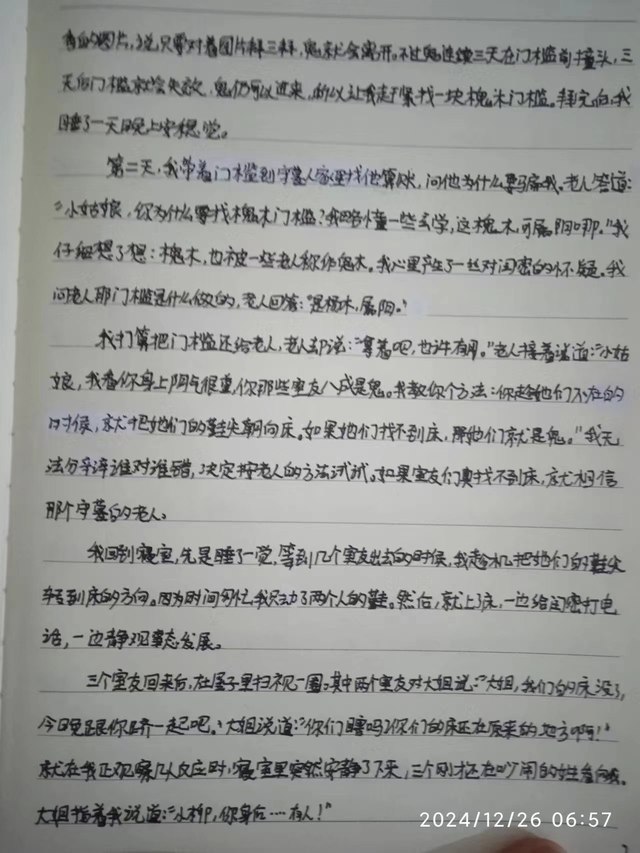 看的图片,说只要对着图片拜三拜,鬼就会离开。不过鬼连续三天在门槛前撞头,三
天后门槛就会失效,鬼仍可以进来,所以让我赶紧找一块槐木门槛。拜完后,我
睡了一天晚上安稳觉。
第二天,我带着门槛到守墓人家里找他算账,问他为什么要骗我。老人答道:
"小姑娘,你为什么要找槐木门槛?我略懂一些玄学,这槐木,可属阴啊。"我
仔细想了想:槐木,也被一些老人称作鬼木。我心里产生了一丝对闺密的怀疑。我
问老人那门槛是什么做的,老人回答:"是杨木,属阴。"
我打算把门槛还给老人,老人却说:"拿着吧,也许有用。"老人接着说道:"小姑
娘,我看你身上阴气很重,你那些室友八成是鬼。我教你个方法:你趁她们不在的
时候,就把她们的鞋尖朝向床。如果她们找不到床,那她们就是鬼。"我无
法分辨谁对谁错,决定按老人的方法试试。如果室友们真找不到床,就相信
那个守墓的老人。
我回到寝室,先是睡了一觉,等到几个室友出去的时候,我趁机把她们的鞋尖
转到床的方向。因为时间匆忙,我只动了两个人的鞋。然后,就上了床,一边给闺密打电
话,一边静观事态发展。
三个室友回来后,在屋子里扫视一圈。其中两个室友对大姐说:"大姐,我们的床没了,
今日晚跟你挤一起吧。"大姐说道:"你们瞎吗?你们的床还在原来的地方啊!"
就在我正观察几人反应时,寝室里突然安静了下来,三个刚才还在吵闹的姓看向我。
大姐指着我说道:"小柳,你身后……有人!"
2024/12/26 06:57